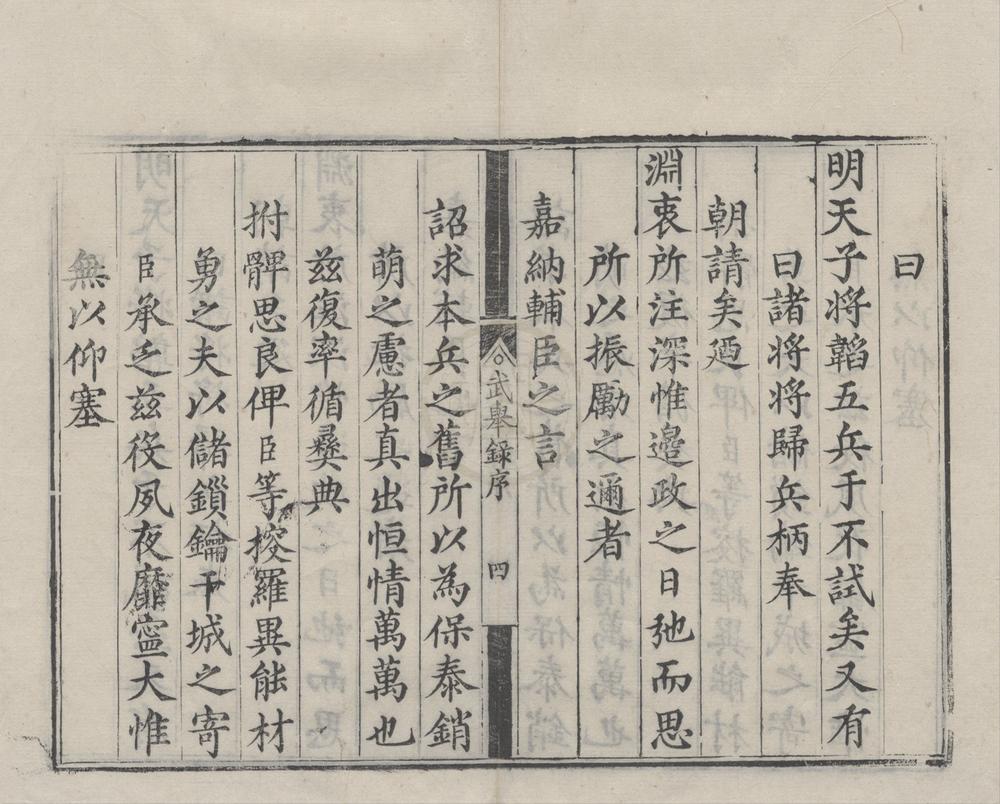 曰
明天子将韜五兵于不試矣又有
曰諸将将歸兵柄奉
朝請矣廼
淵衷所注深惟邉政之日弛而思
所以振勵之邇者
嘉納輔臣之言
武舉錄序 四
詔求本兵之舊所以為保泰銷
萌之慮者真出恒情萬萬也
兹復率循彝典
拊髀思良俾臣等搜羅異能材
勇之夫以儲鎖鑰干城之寄
臣承乏兹役夙夜靡寧大惟
無以仰塞